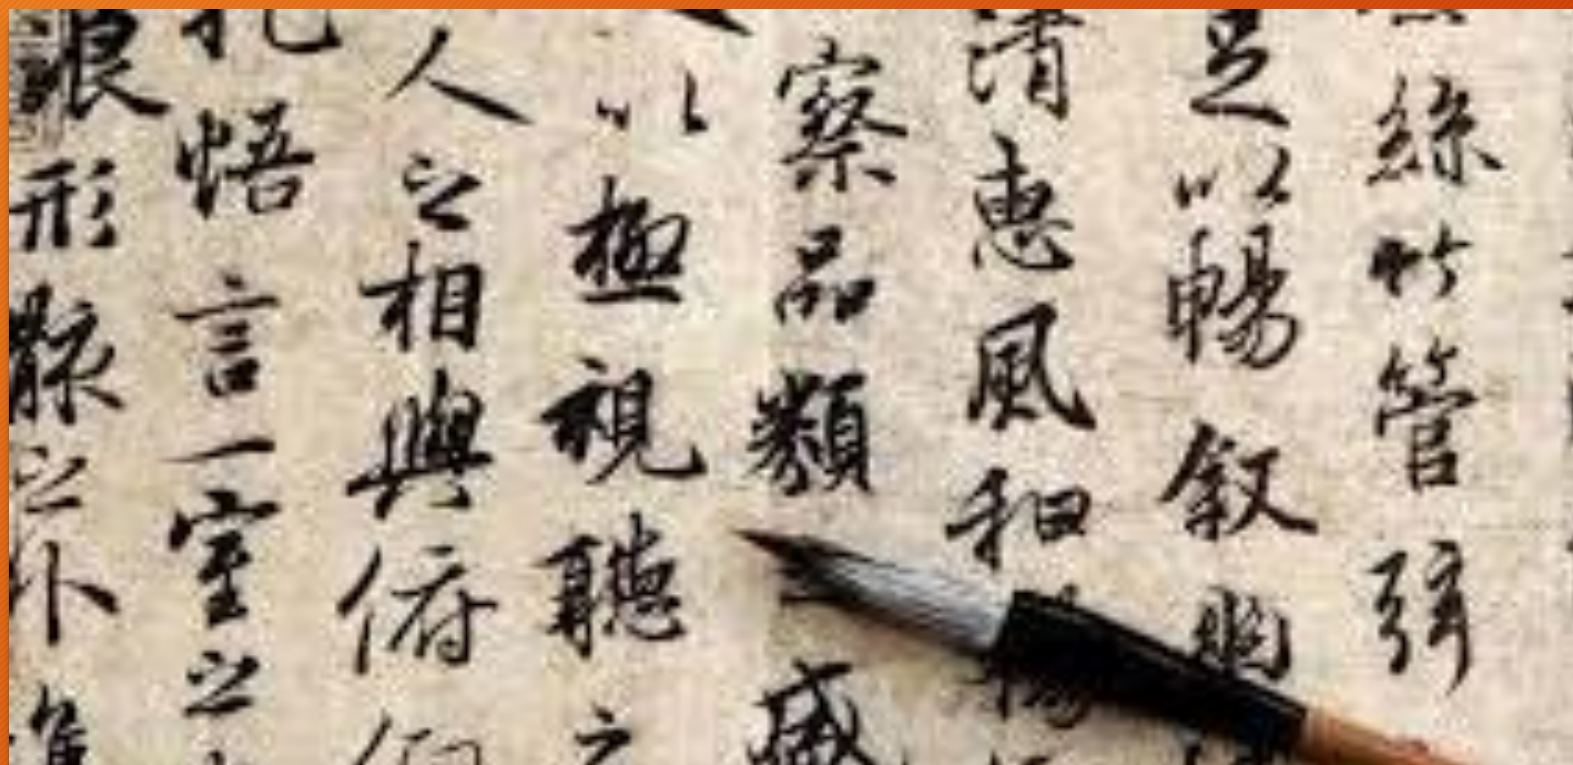 絲竹管弦
足以暢叙幽
清惠風和暢
察品類盛
以極視聽之
人之相與俯仰
抱悟言一室之
浪形骸之外雖